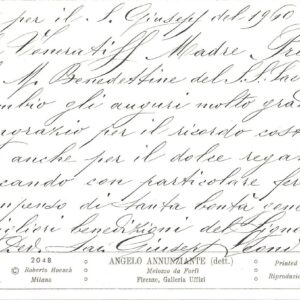 per il S. Giuseppe del 1960
Veneratiss Madre Pr
M. Benedettine del S. S. Sac
mbio gli auguri molto gra
ngrazio per il ricordo cost
anche per il dolce rega
cando con particolare fer
mpenso di santa bontà con
gliori benedizioni del Signo
Dev. Sac. Giuseppe
2048
© Roberto Hoesch
Milano
ANGELO ANNUNZIANTE (dett.)
Melozzo da Forlì
Firenze, Galleria Uffizi
Printed
Riproduzi